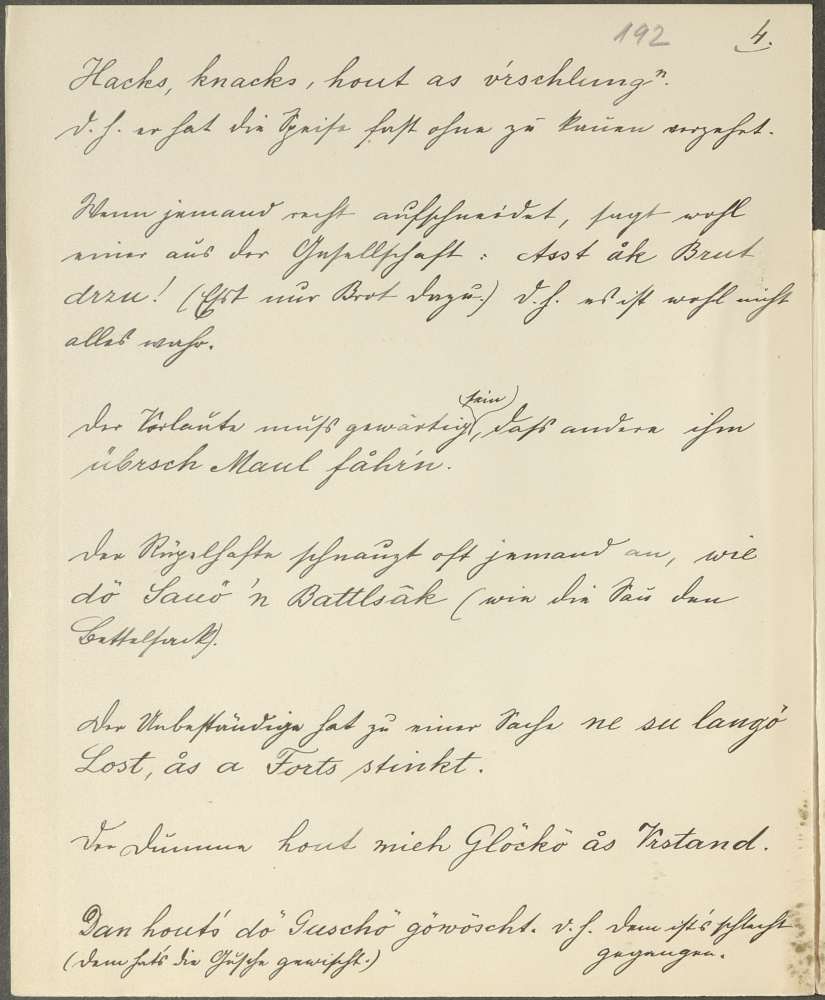 192 4.
Hacks, knacks, hout as v'rschlungⁿ.
d. h. er hat die Speise fast ohne zu kauen verzehrt.
Wenn jemand recht aufschneidet, sagt wohl
einer aus der Gesellschaft: Asst åk Brut
drzu! (Eßt nur Brot dazu.) D. h. es ist wohl nicht
alles wahr.
Der Vorlaute muß gewärtig (sein), daß andere ihm
übrsch Maul fåhr'n.
Der Rüpelhafte schnauzt oft jemand an, wie
dö Sauö 'n Battlsåk (wie die Sau den
Bettelsack).
Der Unbeständige hat zu einer Sache ne su langö
Lost, ås a Forts stinkt.
Der Dumme hout mieh Glöckö ås Vrstand.
Dan hout's dö Guschö göwöscht. d. h. dem ist's schlecht
gegangen.
(Dem hat's die Gusche gewischt.)